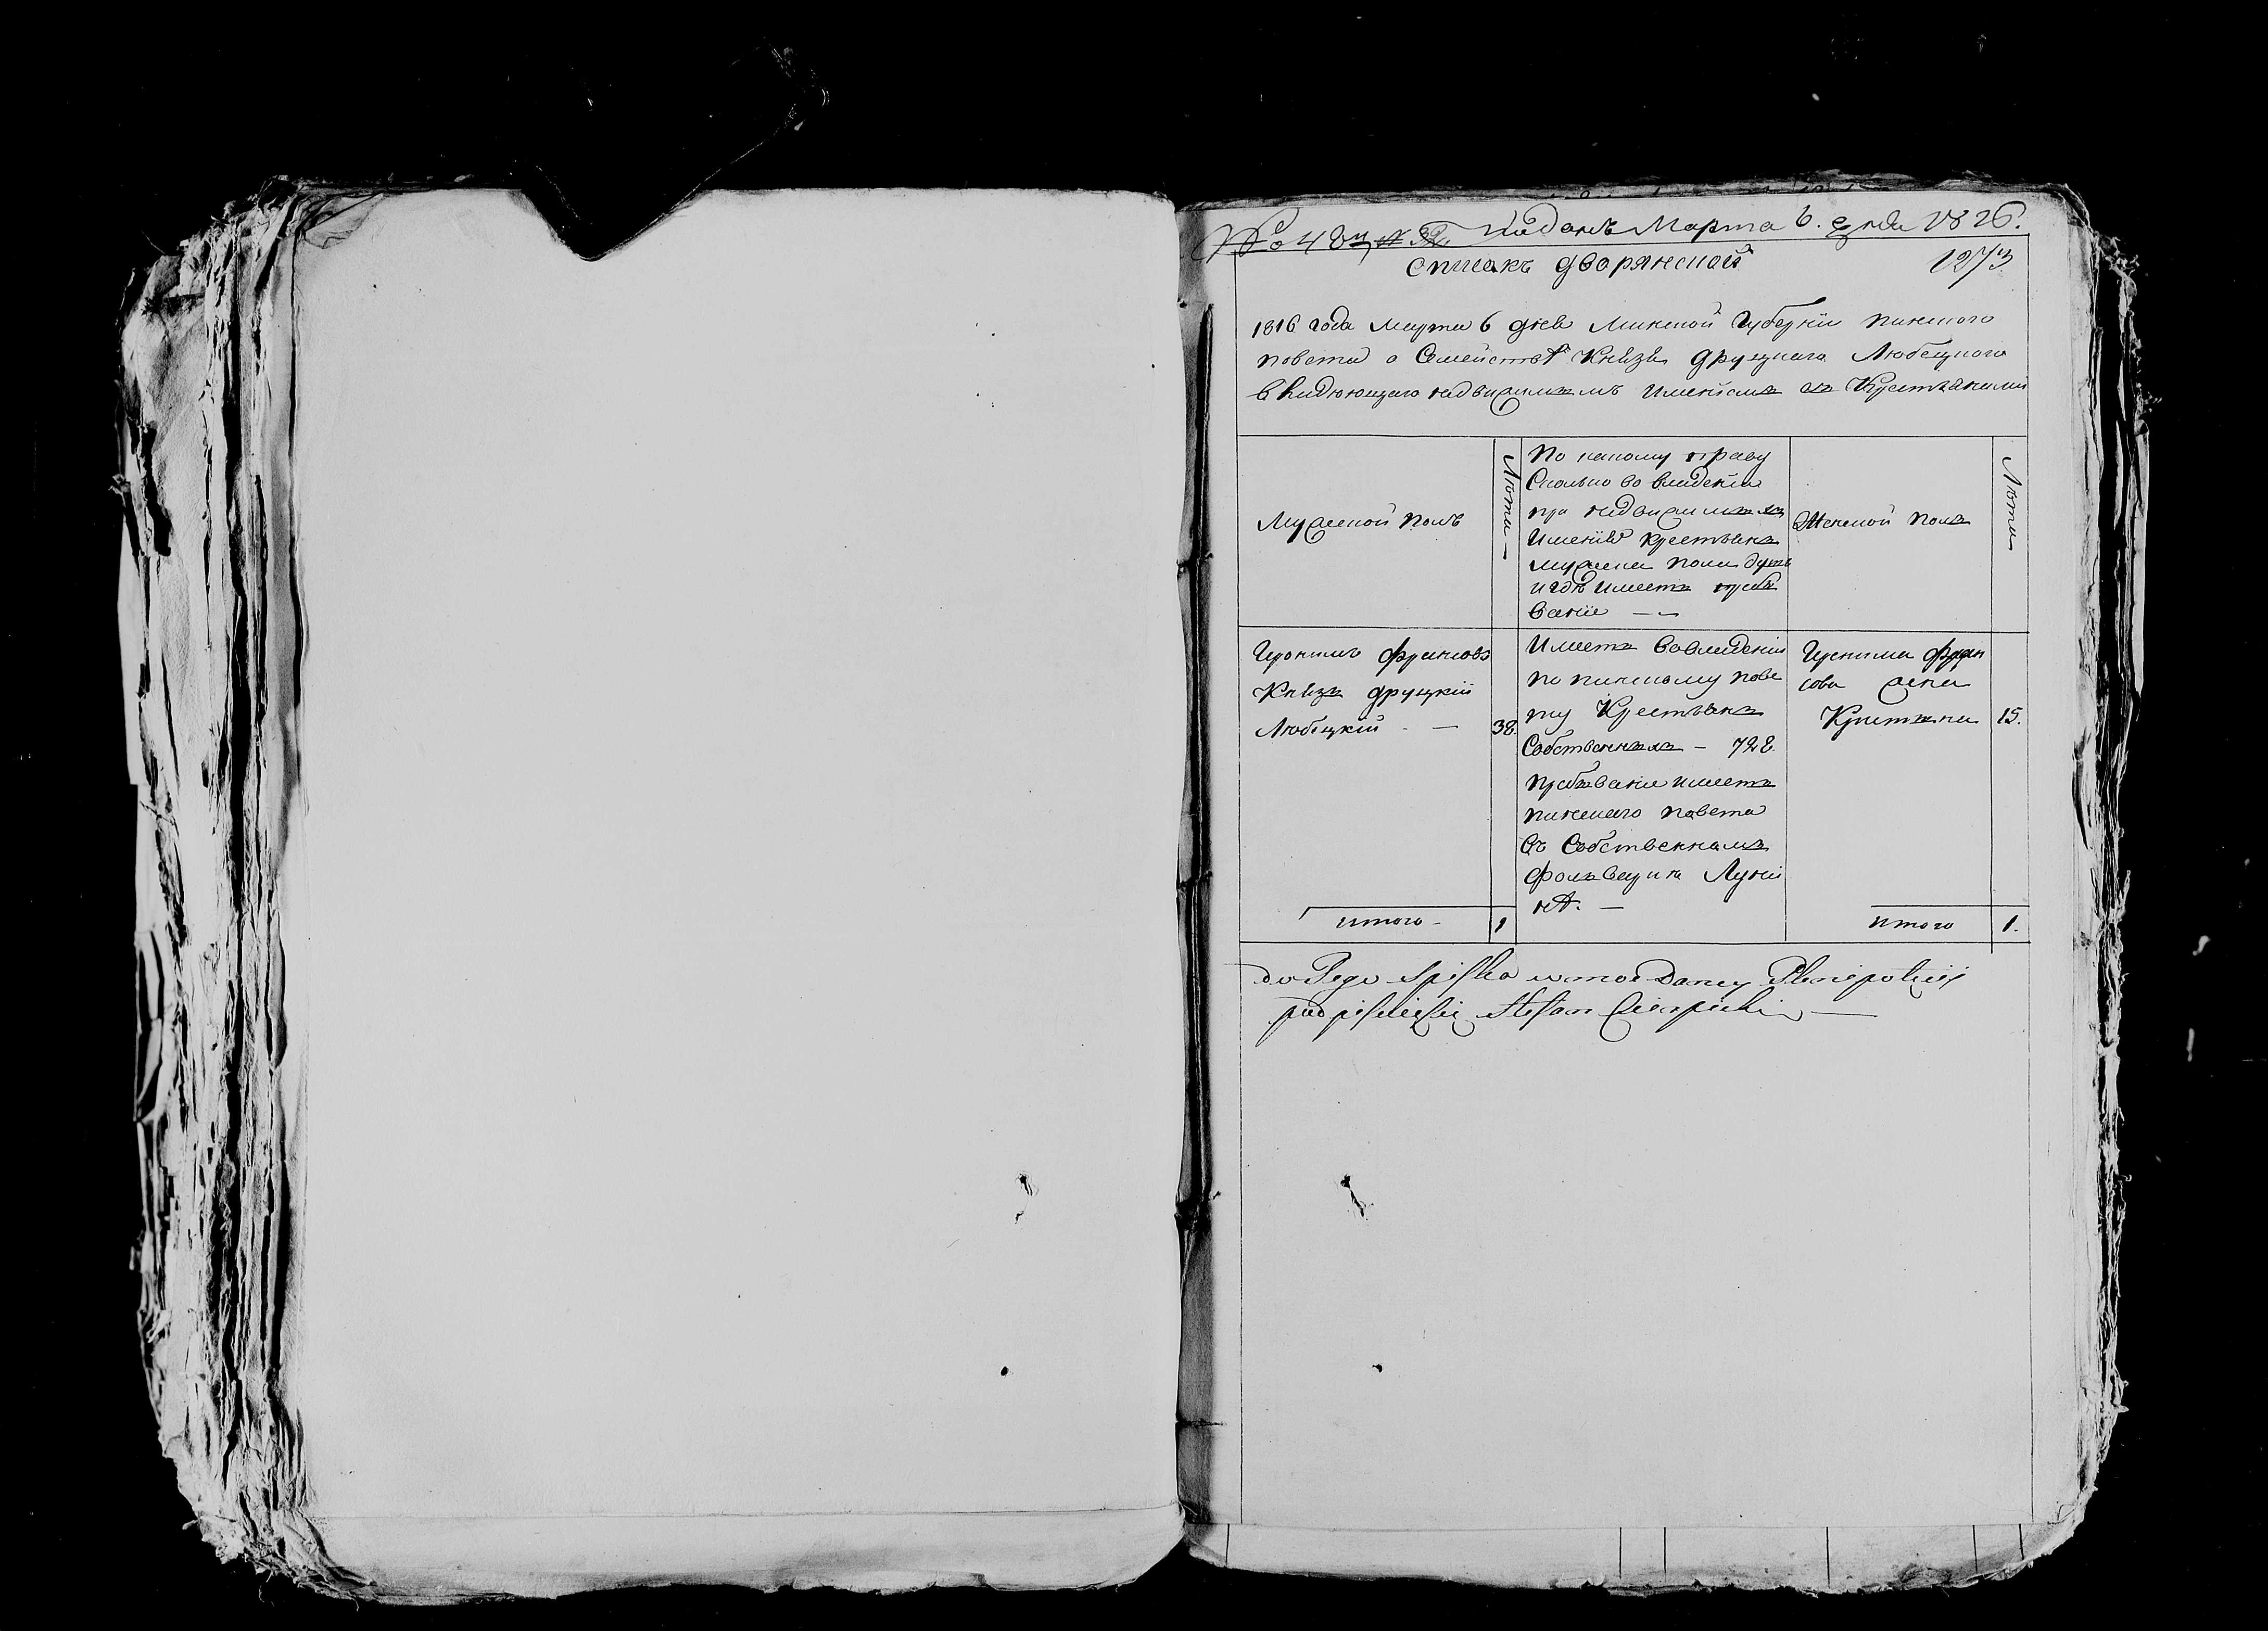 Поданъ Марта 6. дня 1816.
Списокъ дворянской
1273
1816 года Марта 6 дня Минской Губернiи пинского
повета о Семействѣ Князя друцкаго Любецкого
владеющаго недвижимымъ Имениемъ съ Крестьянами
Мужеской полъ
Лѣта —
По какому праву
Сколько во владении
при недвижимымъ
Имении крестьянъ
мужеска пола душъ
и гдѣ имеетъ пребы
вание —
Женской полъ
Лѣта
Иеронимъ францовъ
Князь друцкiй
Любецкiй — 38.
Имеетъ вовладении
по пинскому пове
ту Крестьянъ
Собственныхъ — 728.
пребывание имеетъ
пинского повета
въ Собственномъ
фольварку Луни
нѣ. —
Иеронима фран
цова жена
Кристина 15.
итого — 1
итого 1.
do Tego Spiska w moc Daney Plenipotencij
podpisuię się Stefan Cierpicki —